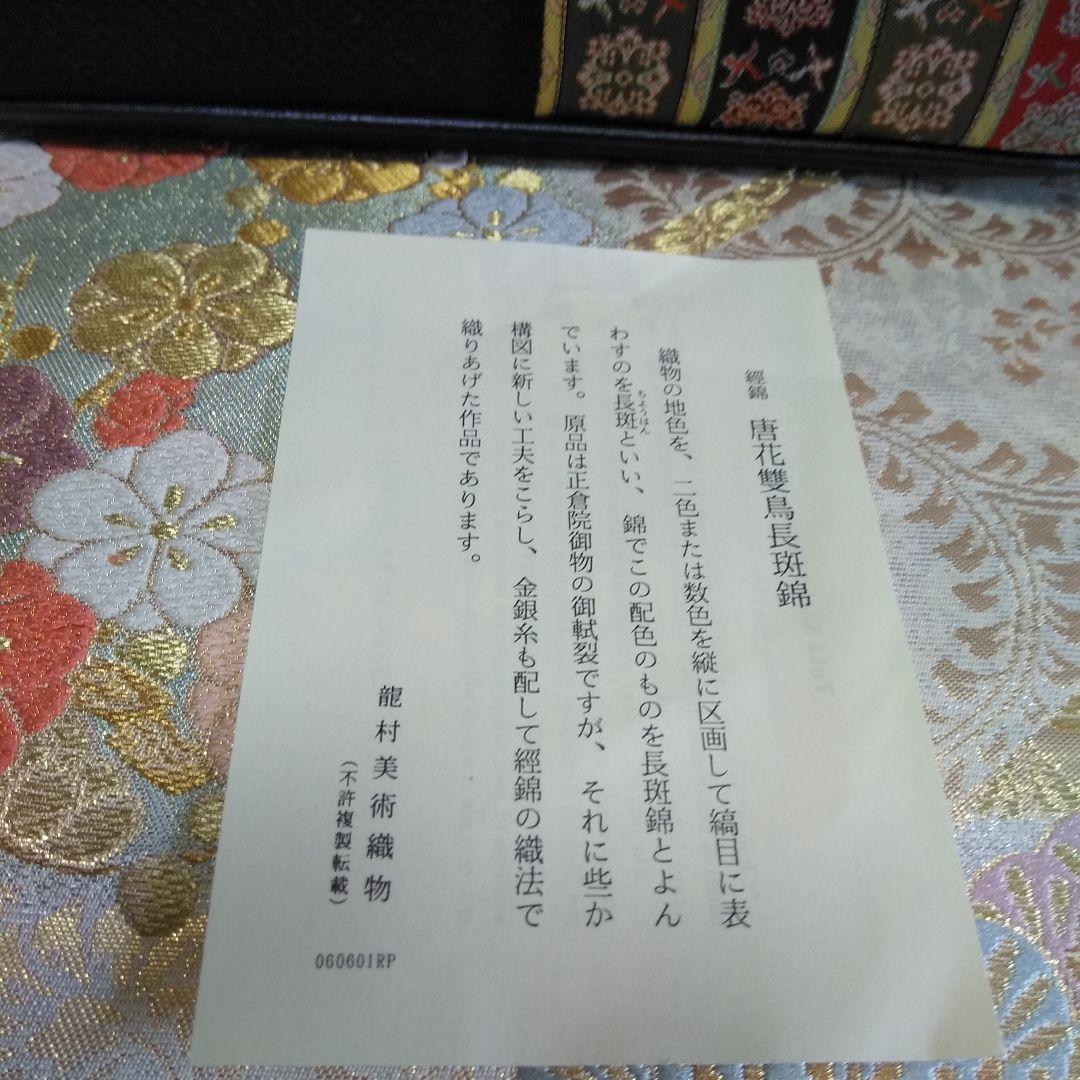 經錦 唐花雙鳥長斑錦
織物の地色を、二色または数色を縦に区画して縞目に表
わすのを長斑といい、錦でこの配色のものを長斑錦とよん
ちょうはん
でいます。原品は正倉院御物の御軾裂ですが、それに些か
構図に新しい工夫をこらし、金銀糸も配して經錦の織法で
織りあげた作品であります。
龍村美術織物
(不許複製転載)
060601RP